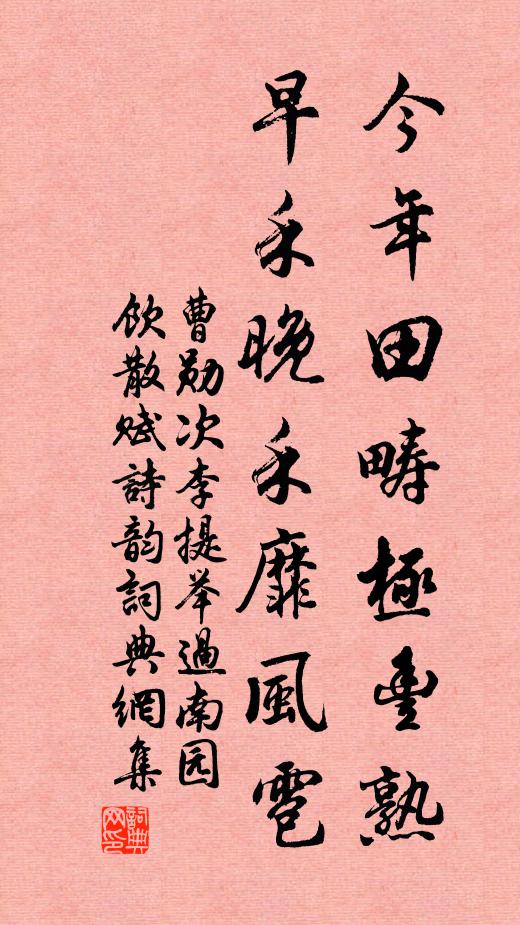 今年田畴極豊熟
早禾晚禾靡風雹
曹勋次李提举過南园
飲散賦詩韵詞典網集
詞典网印